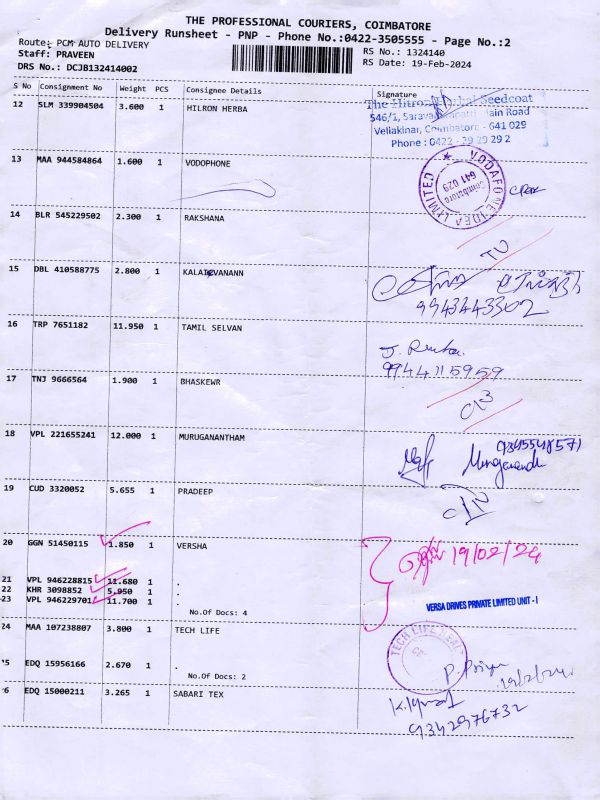 THE PROFESSIONAL COURIERS, COIMBATORE
Delivery Runsheet - PNP - Phone No.:0422-3505555 - Page No.:2
Route: PCM AUTO DELIVERY
RS No.: 1324140
Staff: PRAVEEN
RS Date: 19-Feb-2024
DRS No.: DCJB132414002
S No Consignment No Weight PCS Consignee Details Signature
12 SLM 339904504 3.600 1 HILRON HERBA
Seedcoat
546/1, Main Road
Veliakinar, Coimbatore - 641 029
Phone : 0422 - 39 29 29 2
13 MAA 944584864 1.600 1 VODOPHONE
VODAFONE IDEA LIMITED
Coimbatore
641 029
14 BLR 545229502 2.300 1 RAKSHANA
15 DBL 410588775 2.800 1
9943443302
16 TRP 7651182 11.950 1 TAMIL SELVAN
9944115959
17 TNJ 9666564 1.900 1 BHASKEWR
18 VPL 221655241 12.000 1 MURUGANANTHAM
9345548571
19 CUD 3320052 5.655 1 PRADEEP
20 GGN 51450115 1.850 1 VERSHA
19/02/24
21 VPL 946228815 11.680 1 .
22 KHR 3098852 5.950 1 .
23 VPL 946229701 11.700 1 .
No.Of Docs: 4
VERSA DRIVES PRIVATE LIMITED UNIT - I
24 MAA 107238807 3.800 1 TECH LIFE
TECH LIFE
25 EDQ 15956166 2.670 1 .
No.Of Docs: 2
P. Priya
19/2/24
26 EDQ 15000211 3.265 1 SABARI TEX
9342976732